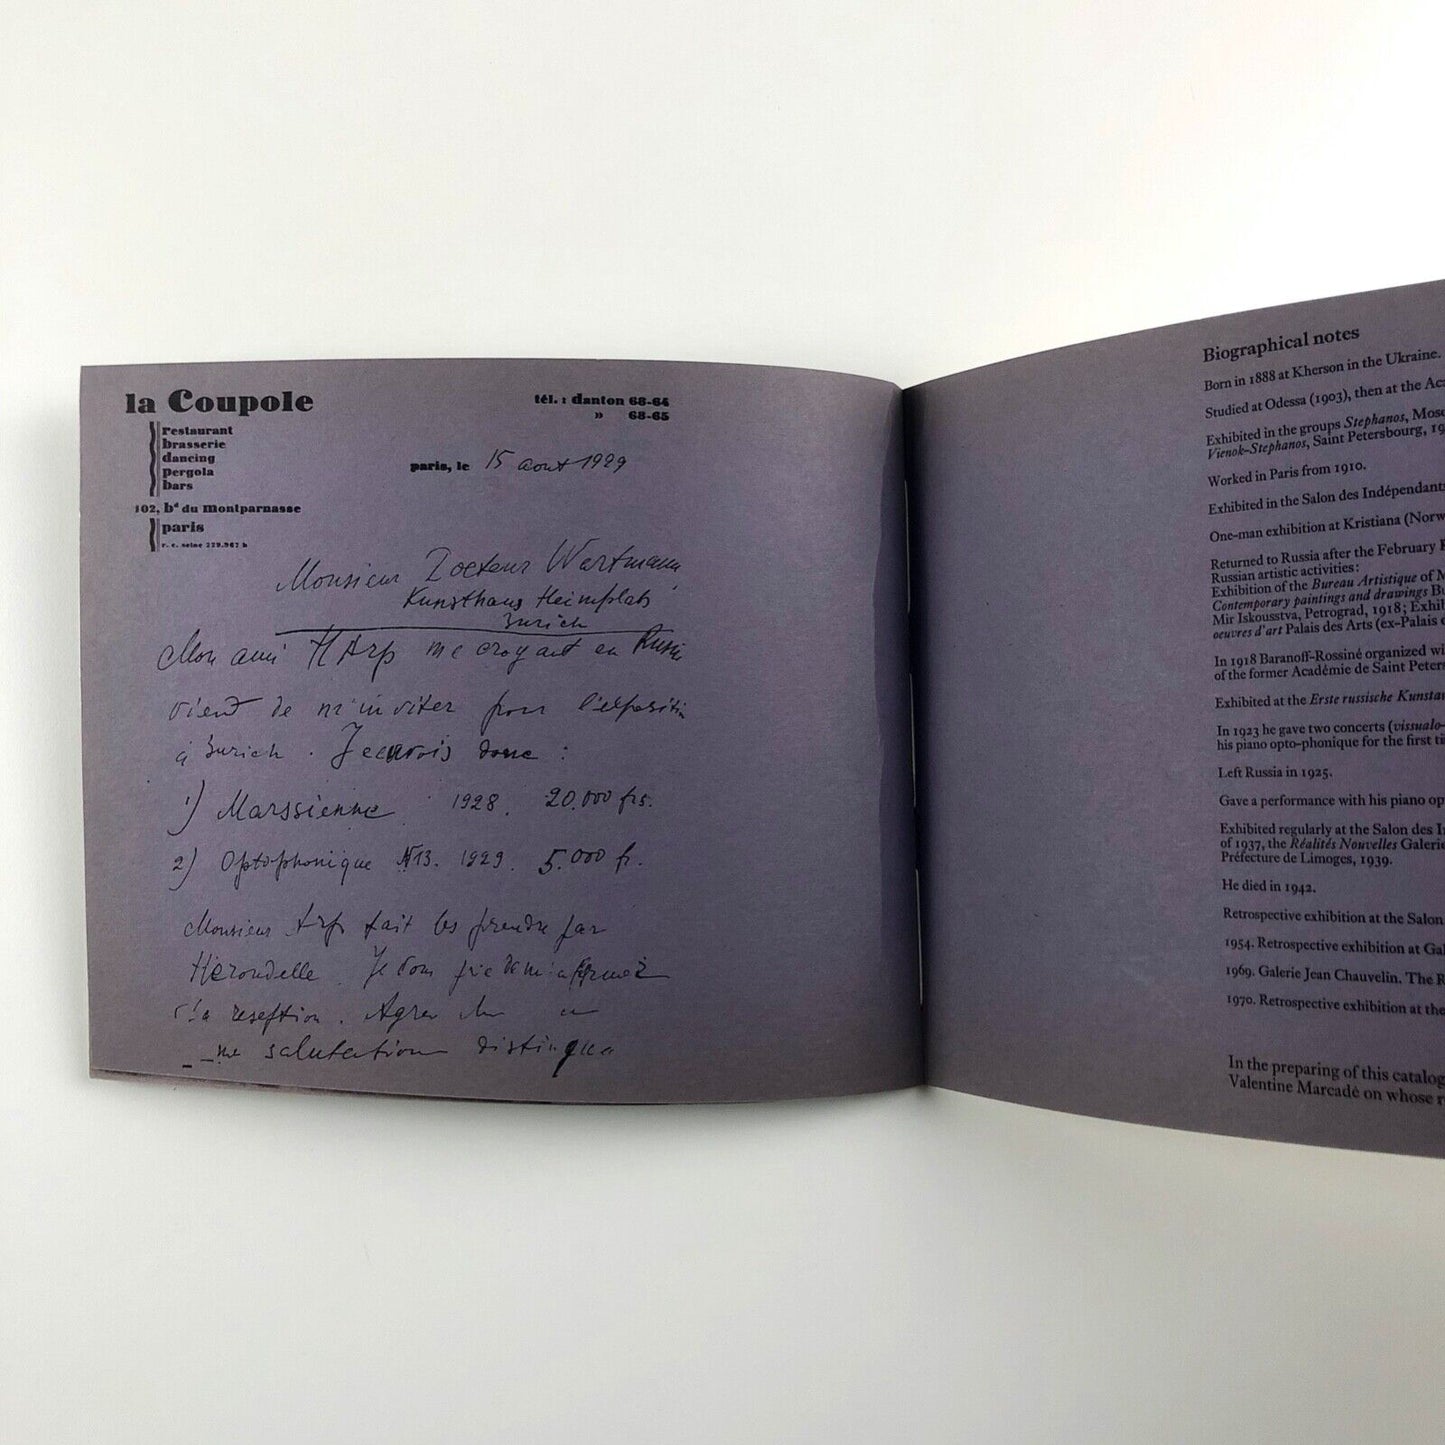 la Coupole
restaurant
brasserie
dancing
pergola
bars
102, bd du Montparnasse
paris
r. c. seine 229.967 b
tél. : danton 68-64
» 68-65
paris, le 15 aout 1929
Monsieur Docteur Wartmann
Kunsthaus Heimplats
Zurich
Mon ami H Arp me croyant en Russi
vient de m'inviter pour l'expositi
à Zurich. J'envois donc :
1) Marssienne 1928. 20.000 frs.
2) Optophonique N13. 1929. 5.000 fr.
Monsieur Arp fait les prendre par
Hérondelle. Je vous prie de m'informez
la reseption. Agrer
me salutation distingua
Biographical notes
Born in 1888 at Kherson in the Ukraine.
Studied at Odessa (1903), then at the Aca
Exhibited in the groups Stephanos, Mosc
Vienok-Stephanos, Saint Petersbourg, 19
Worked in Paris from 1910.
Exhibited in the Salon des Indépendants
One-man exhibition at Kristiana (Norw
Returned to Russia after the February R
Russian artistic activities:
Exhibition of the Bureau Artistique of M
Contemporary paintings and drawings Bu
Mir Iskousstva, Petrograd, 1918; Exhib
oeuvres d'art Palais des Arts (ex-Palais d
In 1918 Baranoff-Rossiné organized wi
of the former Académie de Saint Peters
Exhibited at the Erste russische Kunstau
In 1923 he gave two concerts (vissualo-
his piano opto-phonique for the first ti
Left Russia in 1925.
Gave a performance with his piano op
Exhibited regularly at the Salon des In
of 1937, the Réalités Nouvelles Galerie
Préfecture de Limoges, 1939.
He died in 1942.
Retrospective exhibition at the Salon
1954. Retrospective exhibition at Gal
1969. Galerie Jean Chauvelin. The R
1970. Retrospective exhibition at the
In the preparing of this catalog
Valentine Marcadé on whose r